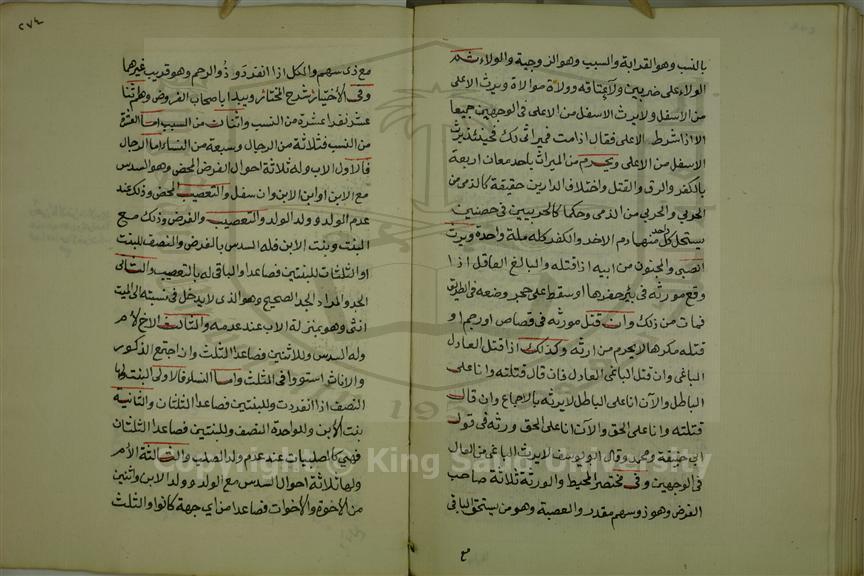 بالنسب وهو القرابة والسبب وهو الزوجية والولاء ثم
الولاء على ضربين ولاء عتاقه وولاة موالاة ويرث الاعلى
من الاسفل ولا يرث الاسفل من الاعلى فى الوجهين جميعا
الا اذا شرط الاعلى فقال اذا مت فميراثى لك فحينئذ يرث
الاسفل من الاعلى ويحرم من الميراث باحد معان اربعة
بالكفر والرق والقتل واختلاف الدارين حقيقة كالذمى من
الحربى والحربى من الذمى وحكما كالحربيين فى حصنين
يستحل كل واحد منهما دم الاخر والكفر كله ملة واحدة ويرث
الصبى والمجنون من ابيه اذا قتله والبالغ العاقل اذا
وقع مورثه فى بئر حفرها او سقط على حجر وضعه فى الطريق
فمات من ذلك وان قتل مورثه فى قصاص او رجم او
قتله مكرها لا يحرم من ارثه وكذلك اذا قتل العادل
الباغى وان قتل الباغى العادل فان قال قتلته وانا على
الباطل والآن انا على الباطل لا يرثه بالاجماع وان قال
قتلته وانا على الحق والآن انا على الحق ورثه فى قول
ابى حنيفة ومحمد وقال ابو يوسف لا يرث الباغى من العال
فى الوجهين وفى مختصر المحيط والورثة ثلاثة صاحب
الفرض وهو ذو سهم مقدر والعصبة وهو من يستحق الباقى
مع
٢٧٤
مع ذى سهم والكل اذا انفرد وذو الرحم وهو قريب غيرهما
وفى الاختيار شرح المختار ويبدا باصحاب الفروض وهم اثنا
عشر نفرا عشرة من النسب واثنان من السبب اما العشرة
من النسب فثلاثة من الرجال وسبعة من النساء اما الرجال
فالاول الاب وله ثلاثة احوال الفرض المحض وهو السدس
مع الابن او ابن الابن وان سفل والتعصيب المحض وذلك عند
عدم الولد وولد الولد والتعصيب والفرض وذلك مع
البنت وبنت الابن فله السدس بالفرض والنصف للبنت
او الثلثان للبنتين فصاعدا والباقى له بالتعصيب والثانى
الجد والمراد الجد الصحيح وهو الذى لا يدخل فى نسبته الى الميت
انثى وهو بمنزلة الاب عند عدمه والثالث الاخ لام
وله السدس وللاثنين فصاعدا الثلث وان اجتمع الذكور
والاناث استووا فى الثلث واما النساء فالاولى البنت ولها
النصف اذا انفردت وللبنتين فصاعدا الثلثان والثانية
بنت الابن وللواحدة النصف وللبنتين فصاعدا الثلثان
فهى كالصلبيات عند عدم ولد الصلب والثالثة الأم
ولها ثلاثة احوال السدس مع الولد وولد الابن واثنين
من الاخوة والاخوات فصاعدا من اى جهة كانوا والثلث
Copyright © King Saud University